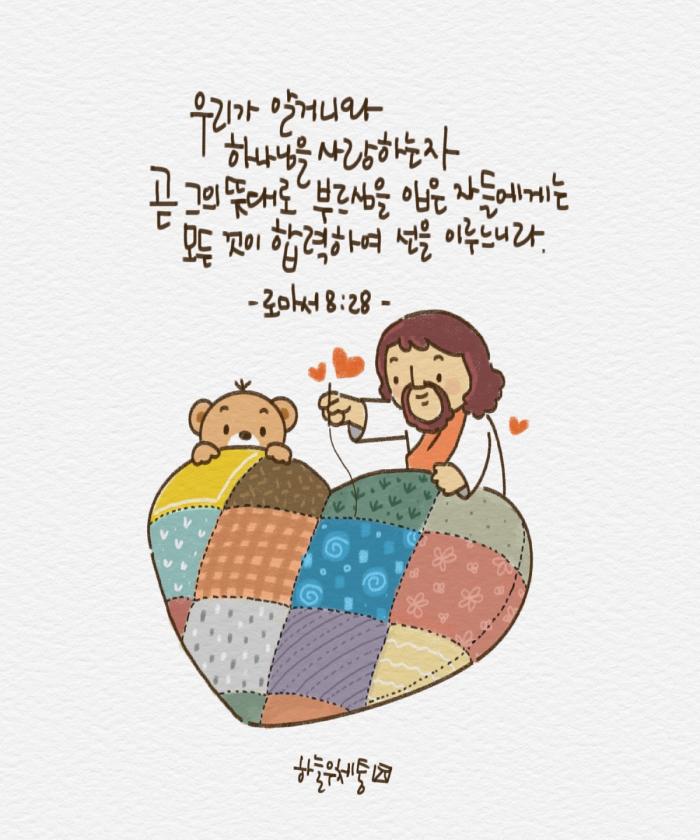 우리가 알거니와
하나님을 사랑하는자
곧 그의 뜻대로 부르심을 입은 자들에게는
모든 것이 합력하여 선을 이루느니라.
-로마서 8:28 -
하늘우체통